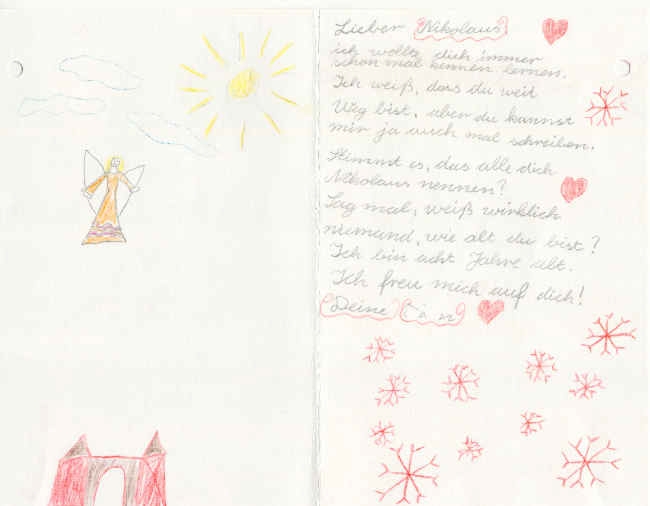 Lieber Nikolaus
ich wollte dich immer
schon mal kennen lernen.
Ich weiß, dass du weit
Weg bist, aber du kannst
mir ja auch mal schreiben.
Stimmt es, das alle dich
Nikolaus nennen?
Sag mal, weiß wirklich
niemand, wie alt du bist?
Ich bin acht Jahre alt.
Ich freu mich auf dich!
Deine